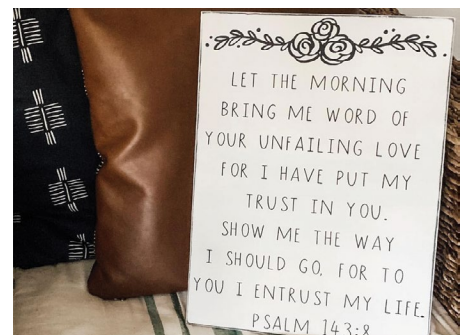 LET THE MORNING
BRING ME WORD OF
YOUR UNFAILING LOVE
FOR I HAVE PUT MY
TRUST IN YOU.
SHOW ME THE WAY
I SHOULD GO, FOR TO
YOU I ENTRUST MY LIFE.
PSALM 143:8